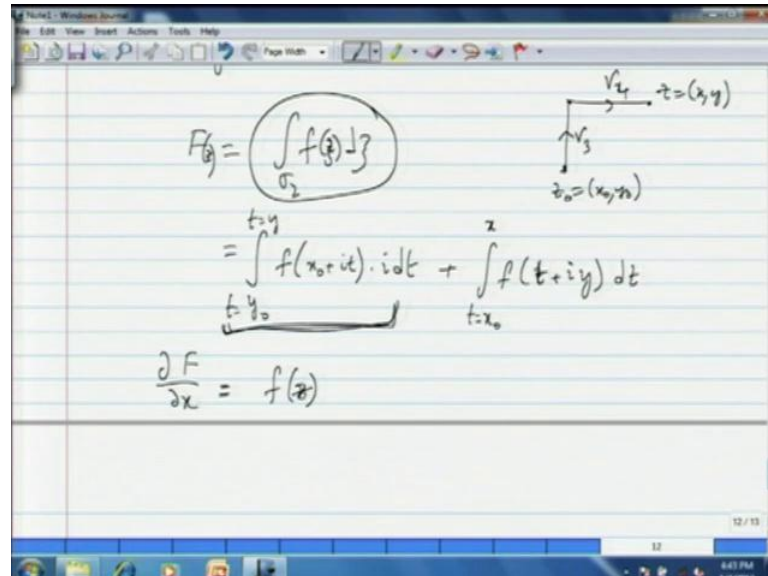 Note1 - Windows Journal
File Edit View Insert Actions Tools Help
Page Width
F(z) = ∫_{σ₂} f(ζ) dζ
γ₄ z=(x,y)
γ₃
z₀=(x₀,y₀)
= ∫_{t=y₀}^{t=y} f(x₀+it)·i dt + ∫_{t=x₀}^{x} f(t+iy) dt
∂F/∂x = f(z)
12/13
12
4:43 PM